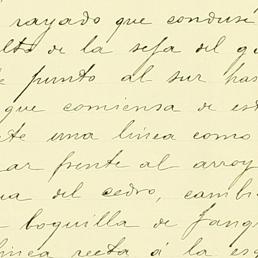 rayado que conduse
de la seja del
punto al sur has
que comiensa de es
te una linea como
ar frente al arroy
ua del cedro, cambi
boquilla de Jang
linea recta á la es